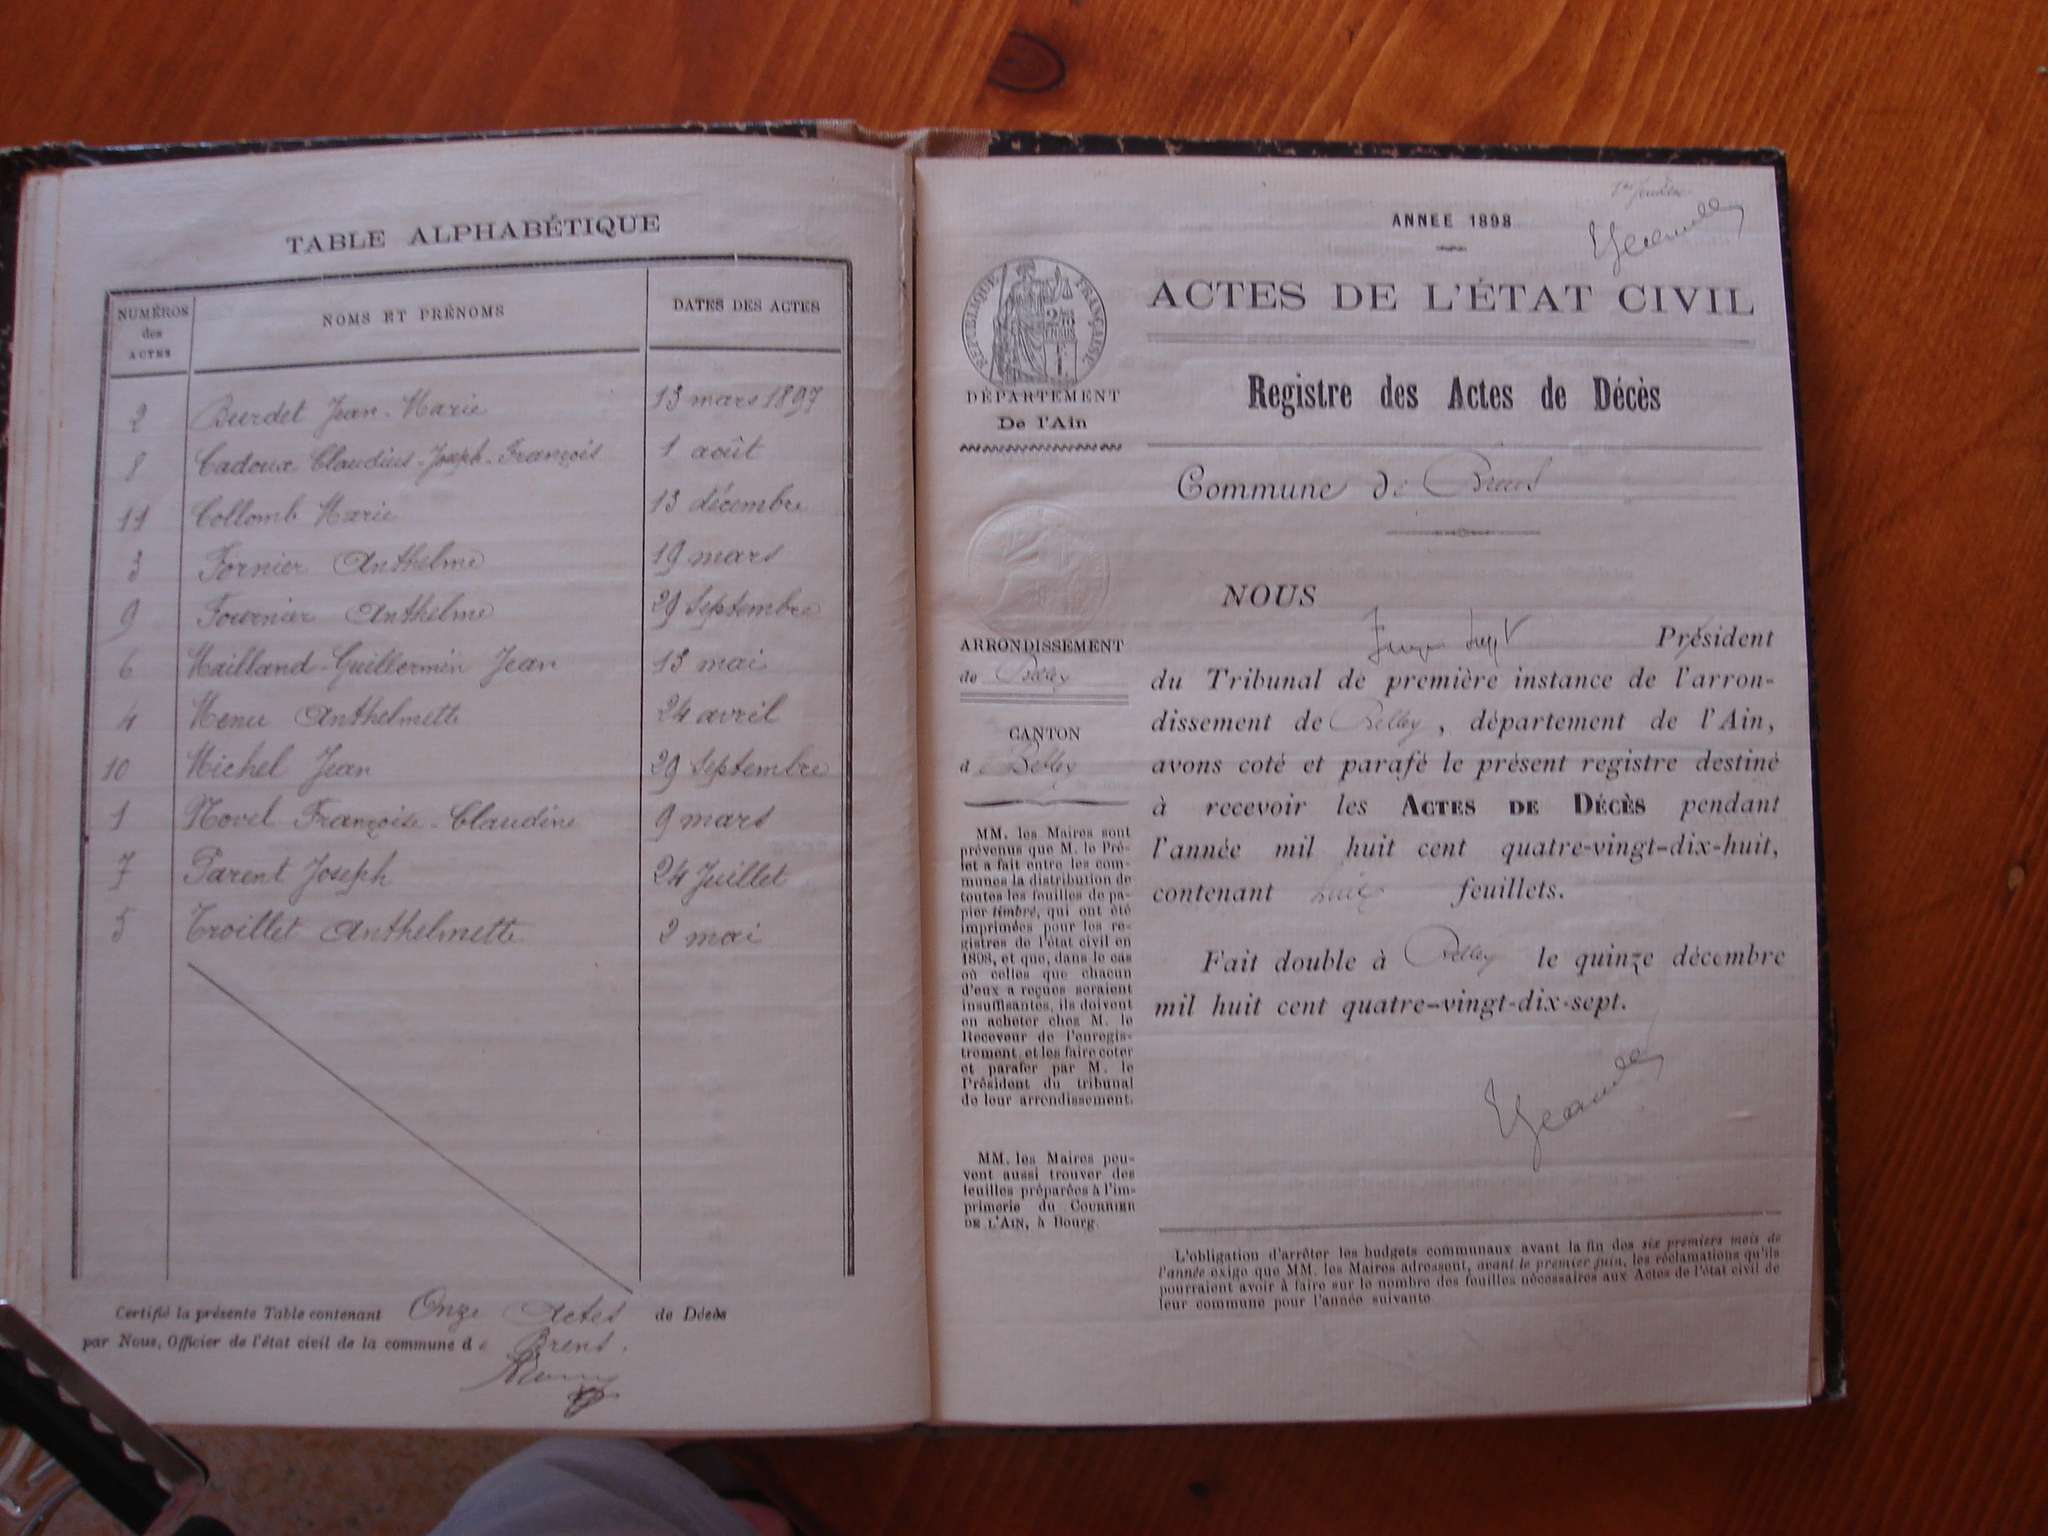 TABLE ALPHABÉTIQUE
NUMÉROS des ACTES
NOMS ET PRÉNOMS
DATES DES ACTES
2 Burdet Jean-Marie 13 mars 1897
8 Cadoux Claudius-Joseph-François 1 août
11 Collomb Marie 13 décembre
3 Fornier Anthelme 19 mars
9 Fournier Anthelme 29 Septembre
6 Mailland-Guillermin Jean 13 mai
4 Menu Anthelmette 24 avril
10 Michel Jean 29 Septembre
1 Novel Françoise-Claudine 9 mars
7 Parent Joseph 24 Juillet
5 Troillet Anthelmette 2 mai
Certifié la présente Table contenant Onze Actes de Décès
par Nous, Officier de l'état civil de la commune de Brens.
ANNÉE 1898
RÉPUBLIQUE FRANÇAISE
ACTES DE L'ÉTAT CIVIL
DÉPARTEMENT
De l'Ain
Registre des Actes de Décès
Commune de Brens
ARRONDISSEMENT
de Belley
CANTON
d Belley
MM. les Maires sont
prévenus que M. le Pré-
fet a fait entre les com-
munes la distribution de
toutes les feuilles de pa-
pier timbré, qui ont été
imprimées pour les re-
gistres de l'état civil en
1898, et que, dans le cas
où celles que chacun
d'eux a reçues seraient
insuffisantes, ils doivent
en acheter chez M. le
Receveur de l'enregis-
trement, et les faire coter
et parafer par M. le
Président du tribunal
de leur arrondissement.
MM. les Maires peu-
vent aussi trouver des
feuilles préparées à l'im-
primerie du COURRIER
DE L'AIN, à Bourg.
NOUS
Président
du Tribunal de première instance de l'arron-
dissement de Belley, département de l'Ain,
avons coté et parafé le présent registre destiné
à recevoir les ACTES DE DÉCÈS pendant
l'année mil huit cent quatre-vingt-dix-huit,
contenant feuillets.
Fait double à Belley le quinze décembre
mil huit cent quatre-vingt-dix-sept.
L'obligation d'arrêter les budgets communaux avant la fin des six premiers mois de
l'année exige que MM. les Maires adressent, avant le premier juin, les réclamations qu'ils
pourraient avoir à faire sur le nombre des feuilles nécessaires aux Actes de l'état civil de
leur commune pour l'année suivante